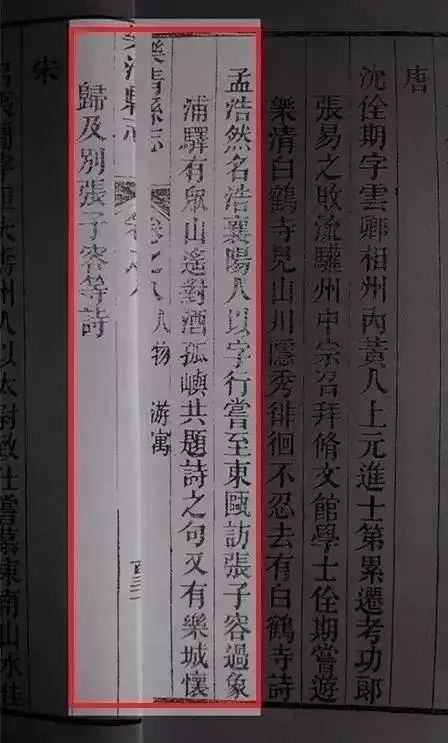 唐
沈佺期字雲卿相州內黃人上元進士第累遷考功郎
張易之敗流驩州中宗召拜脩文館學士佺期嘗遊
樂清白鶴寺見山川隱秀徘徊不忍去有白鶴寺詩
孟浩然名浩襄陽人以字行嘗至東甌訪張子容過象
浦驛有眾山遙對酒孤嶼共題詩之句又有樂城懷
樂清縣志 卷之八 人物 游寓
樂清縣志 卷之八
歸及別張子容等詩
宋
州人以太尉致仕嘗慕東南山水佳